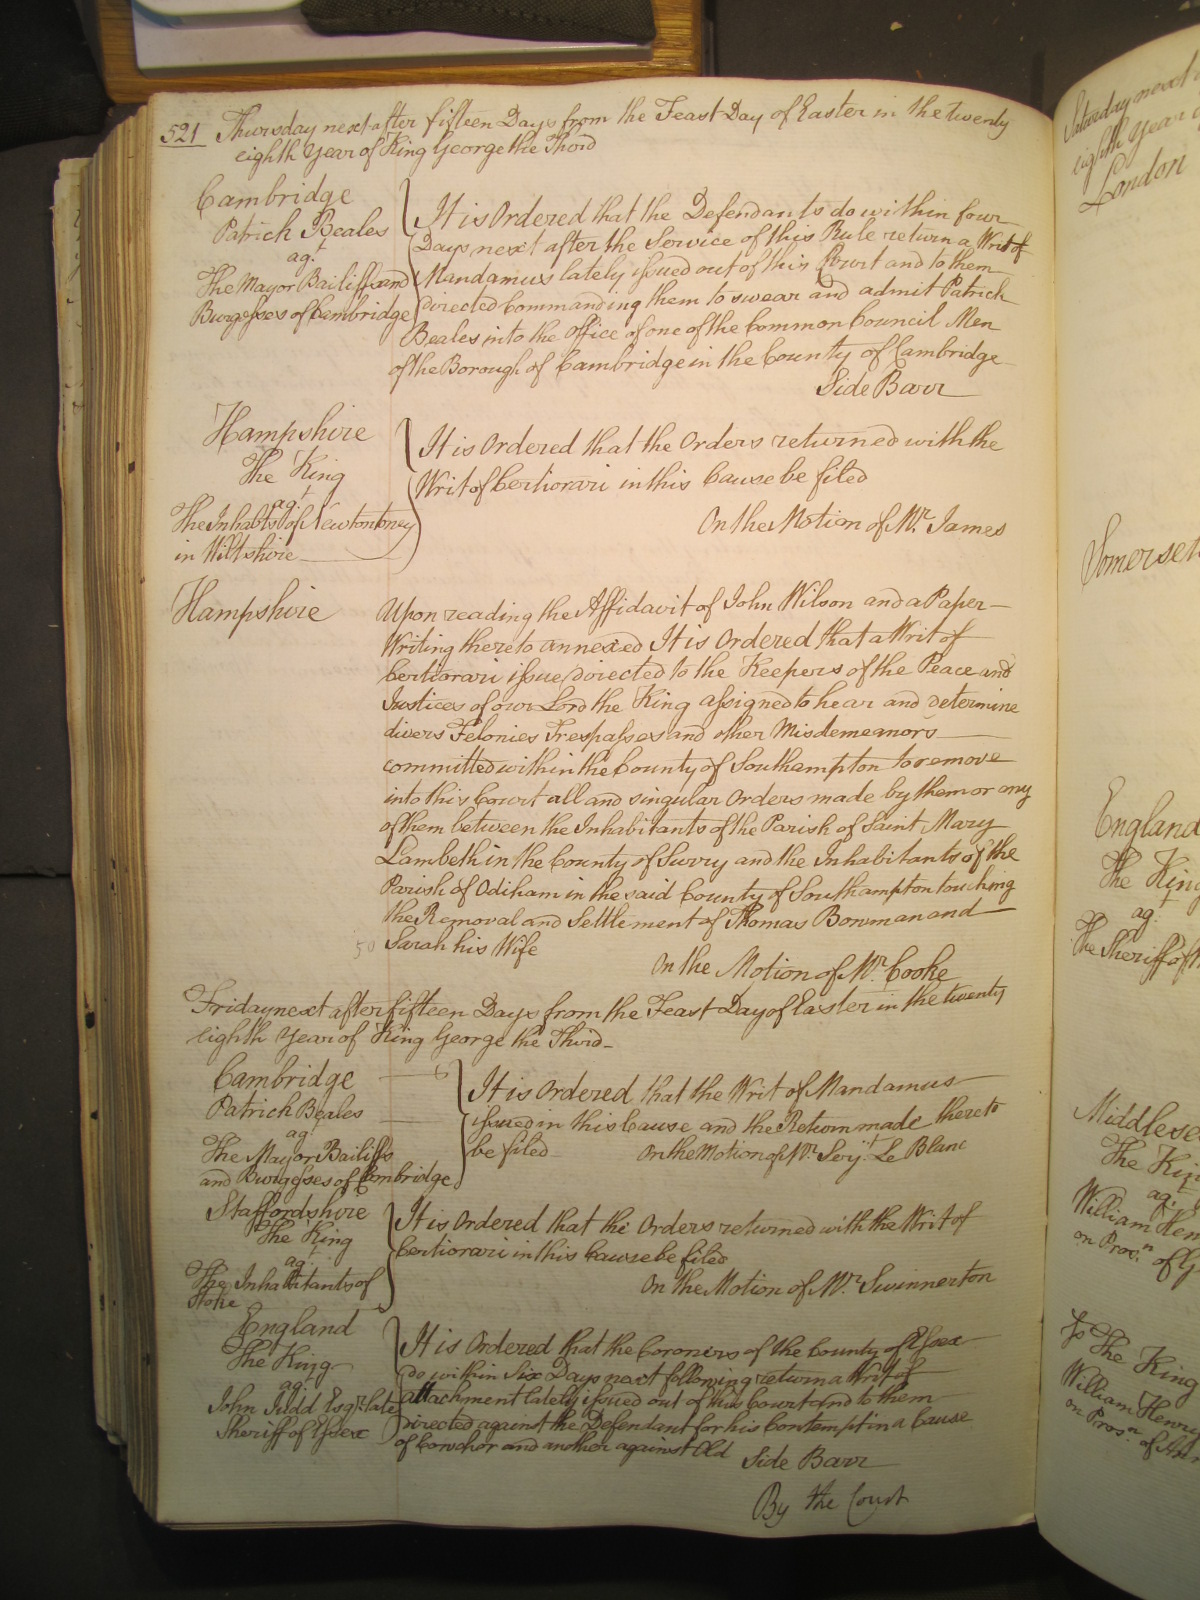 521 Thursday next after fifteen Days from the Feast Day of Easter in the Twenty
eighth Year of King George the Third
Cambridge
Patrick Beales
agt.
The Mayor Bailiffs and
Burgesses of Cambridge
It is Ordered that the Defendants do within four
Days next after the Service of this Rule return a Writ of
Mandamus lately issued out of this Court and to them
directed Commanding them to swear and admit Patrick
Beales into the Office of one of the Common Council Men
of the Borough of Cambridge in the County of Cambridge
Side Barr
Hampshire
The King
agt.
The Inhabts. of Newtontoney
in Wiltshire
It is Ordered that the Orders returned with the
Writ of Certiorari in this Cause be filed
On the Motion of Mr. James
Hampshire
Upon reading the Affidavit of John Wilson and a Paper
Writing thereto annexed It is Ordered that a Writ of
Certiorari issue directed to the Keepers of the Peace and
Justices of our Lord the King assigned to hear and determine
divers Felonies Trespasses and other Misdemeanors
committed within the County of Southampton to remove
into this Court all and singular Orders made by them or any
of them between the Inhabitants of the Parish of Saint Mary
Lambeth in the County of Surry and the Inhabitants of the
Parish of Odiham in the said County of Southampton touching
the Removal and Settlement of Thomas Bowman and
50 Sarah his Wife
On the Motion of Mr. Cooke
Friday next after fifteen Days from the Feast Day of Easter in the twenty
eighth Year of King George the Third
Cambridge
Patrick Beales
agt.
The Mayor Bailiffs
and Burgesses of Cambridge
It is Ordered that the Writ of Mandamus
issued in this Cause and the Return made thereto
be filed On the Motion of Mr. Serjt. Le Blanc
Staffordshire
The King
agt.
The Inhabitants of
Stoke
It is Ordered that the Orders returned with the Writ of
Certiorari in this Cause be filed
On the Motion of Mr. Swinnerton
England
The King
agt.
John Judd Esqr. late
Sheriff of Essex
It is Ordered that the Coroners of the County of Essex
do within Six Days next following return a Writ of
Attachment lately issued out of this Court and to them
directed against the Defendant for his Contempt in a Cause
of Cowchor and another against Old
Side Barr
By the Court
Saturday next
eighth Year
London
Somerset
England
The King
agt.
The Sheriff of
Middlesex
The King
agt.
William Hen
on Prosn. of G
The King
William Henry
on Prosn. of Ann